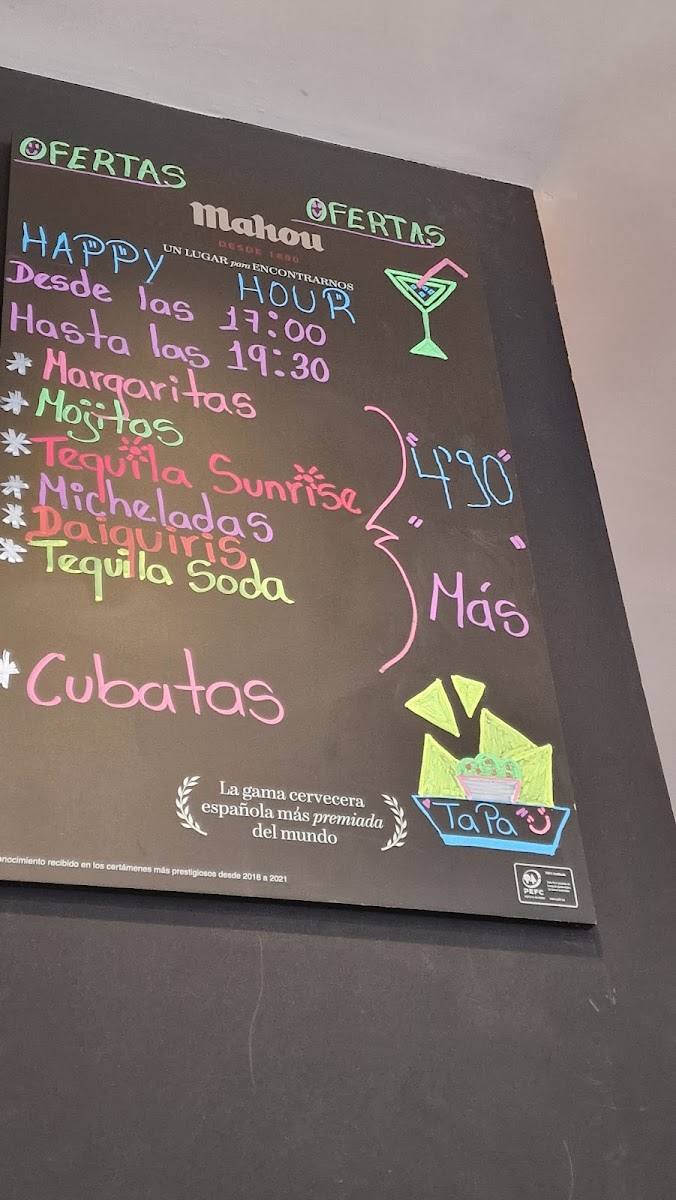 OFERTAS
OFERTAS
mahou
DESDE 1890
UN LUGAR para ENCONTRARNOS
HAPPY HOUR
Desde las 17:00
Hasta las 19:30
* Margaritas
* Mojitos
* Tequila Sunrise
* Micheladas
* Daiquiris
* Tequila Soda
"4'90"
" Más "
TaPa
* Cubatas
La gama cervecera
española más premiada
del mundo
onocimiento recibido en los certámenes más prestigiosos desde 2018 a 2021
PEFC